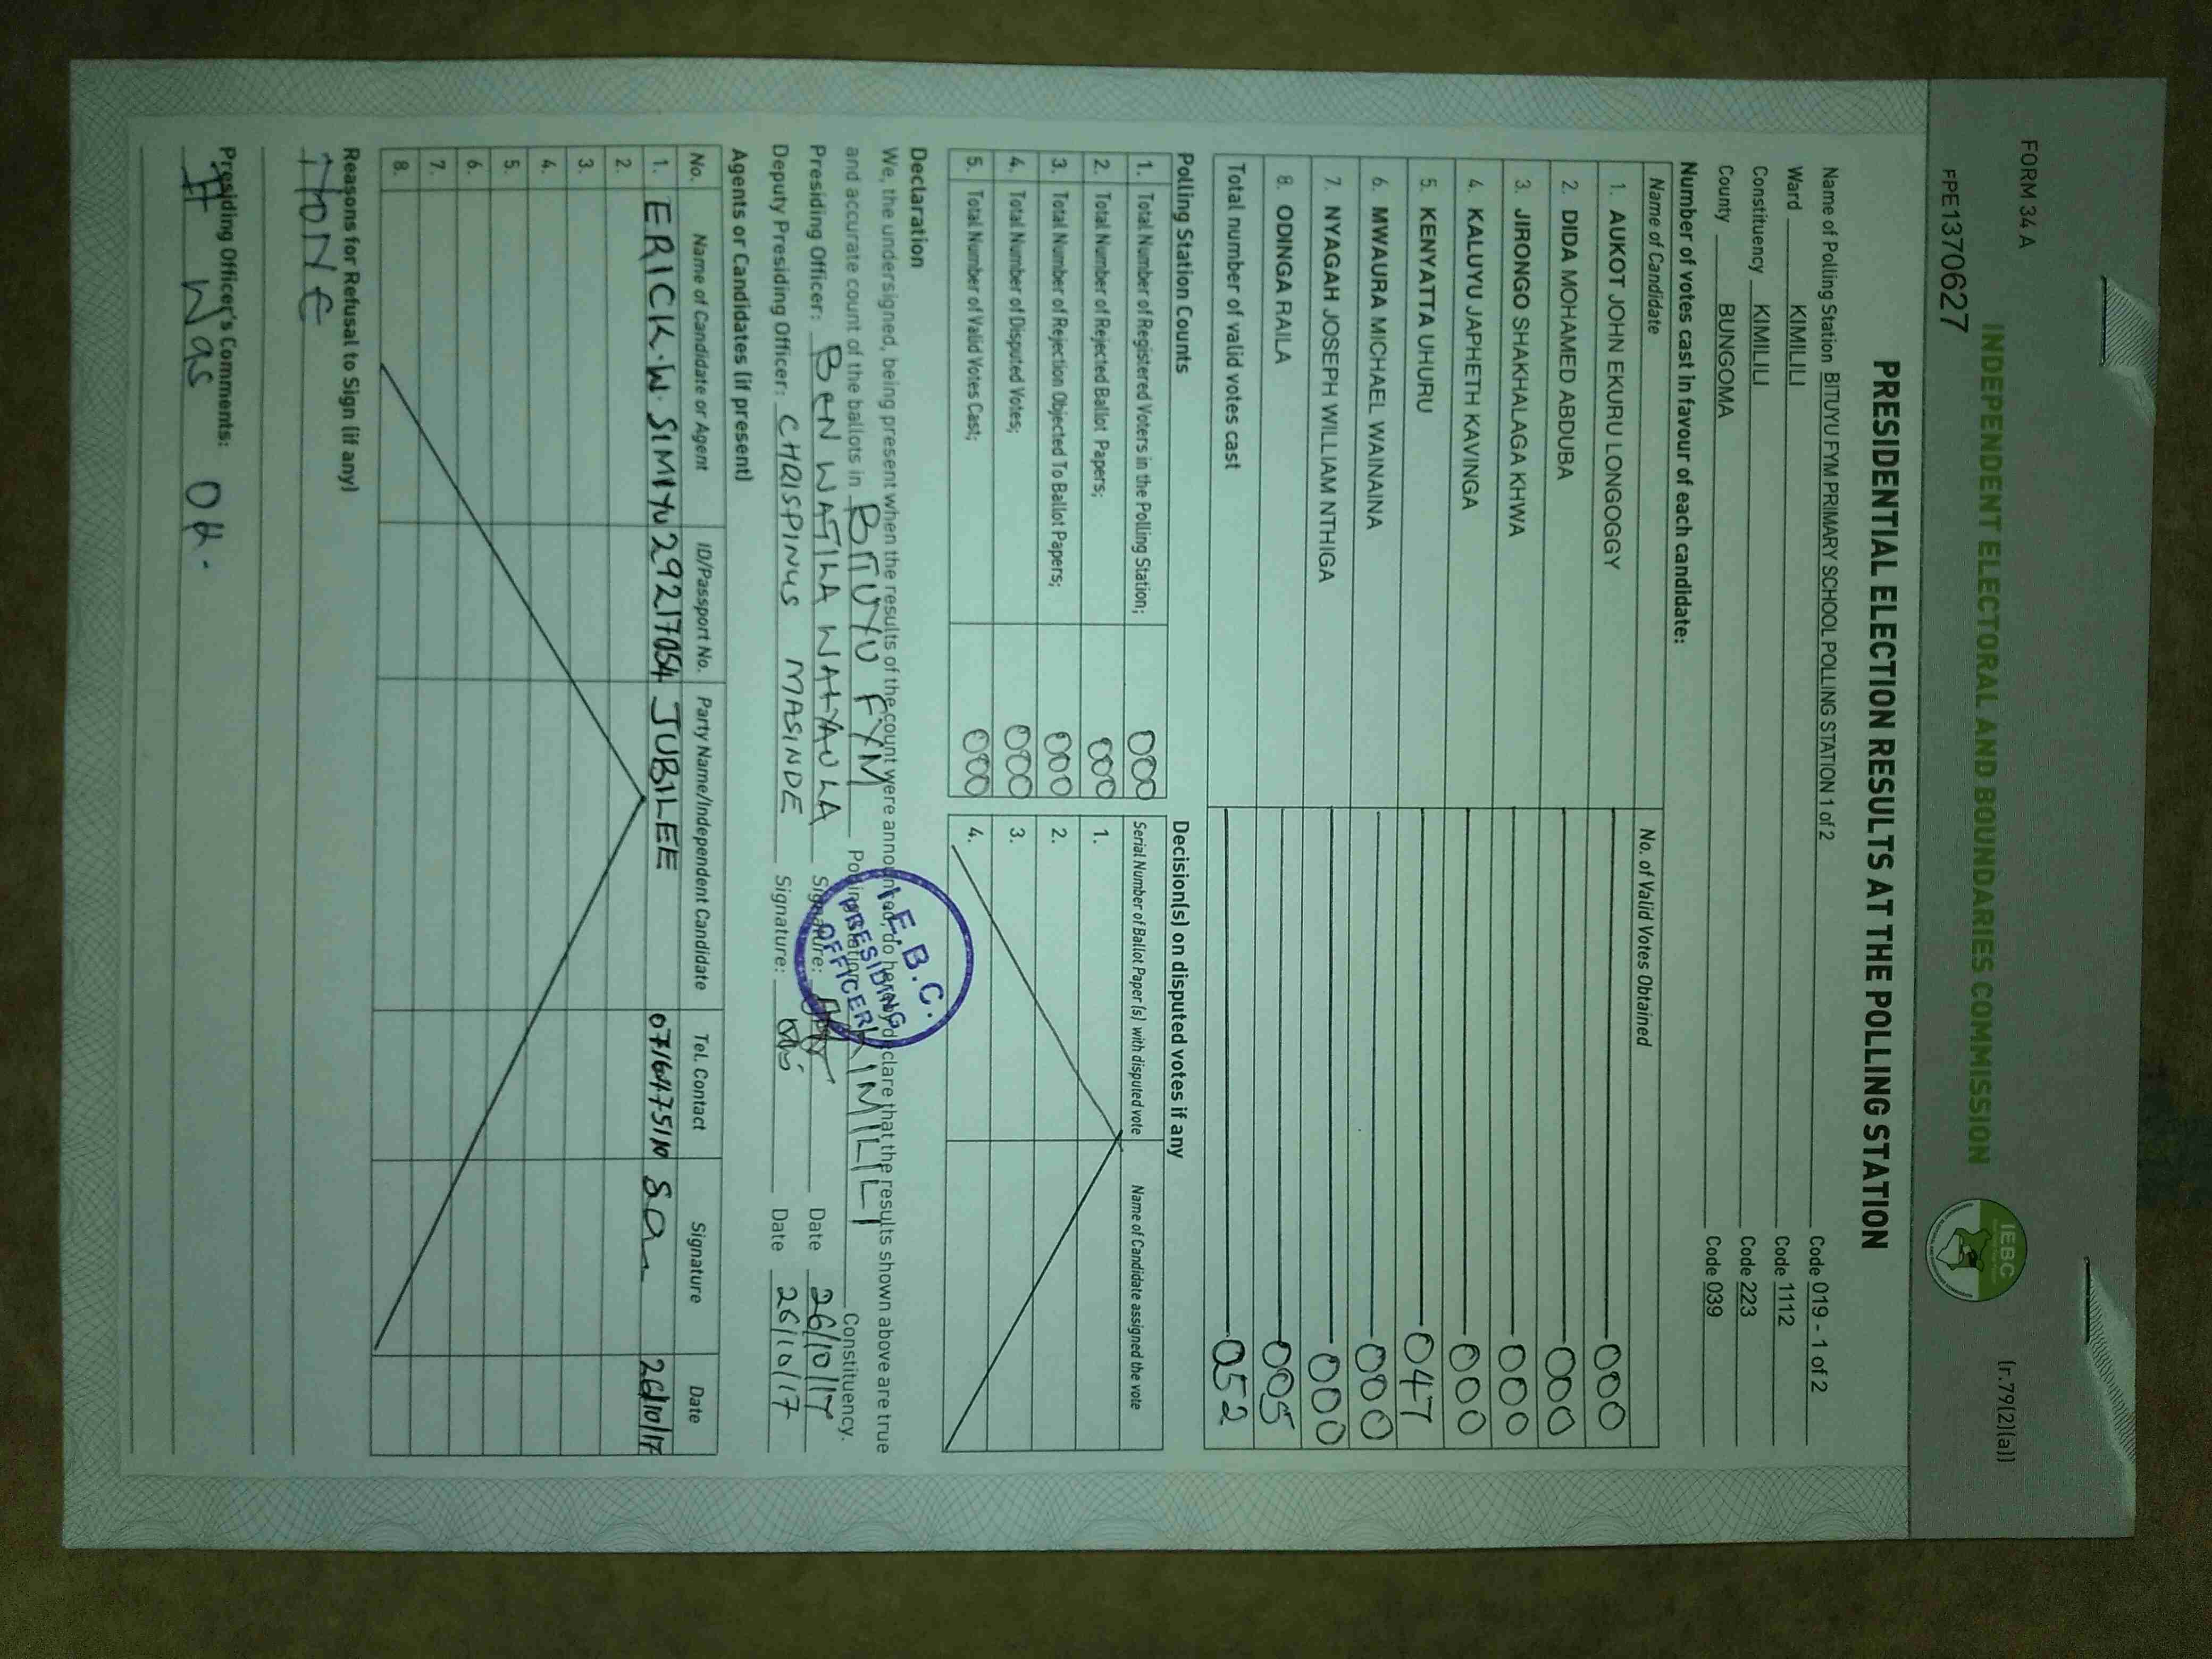 FORM 34 A
(r.79(2)(a))
INDEPENDENT ELECTORAL AND BOUNDARIES COMMISSION
IEBC
FPE1370627
PRESIDENTIAL ELECTION RESULTS AT THE POLLING STATION
Name of Polling Station BITUYU FYM PRIMARY SCHOOL POLLING STATION 1 of 2 Code 019 - 1 of 2
Ward KIMILILI Code 1112
Constituency KIMILILI Code 223
County BUNGOMA Code 039
Number of votes cast in favour of each candidate:
Name of Candidate No. of Valid Votes Obtained
1. AUKOT JOHN EKURU LONGOGGY 000
2. DIDA MOHAMED ABDUBA 000
3. JIRONGO SHAKHALAGA KHWA 000
4. KALUYU JAPHETH KAVINGA 000
5. KENYATTA UHURU 047
6. MWAURA MICHAEL WAINAINA 000
7. NYAGAH JOSEPH WILLIAM NTHIGA 000
8. ODINGA RAILA 005
Total number of valid votes cast 052
Polling Station Counts
1. Total Number of Registered Voters in the Polling Station; 000
2. Total Number of Rejected Ballot Papers; 000
3. Total Number of Rejection Objected To Ballot Papers; 000
4. Total Number of Disputed Votes; 000
5. Total Number of Valid Votes Cast; 000
Decision(s) on disputed votes if any
Serial Number of Ballot Paper (s) with disputed vote Name of Candidate assigned the vote
1.
2.
3.
4.
Declaration
We, the undersigned, being present when the results of the count were announced, do hereby declare that the results shown above are true
and accurate count of the ballots in BITUYU FYM Polling Station KIMILILI Constituency.
Presiding Officer: BEN WATILA Signature: Date 26/10/17
Deputy Presiding Officer: CHRISPINUS MASINDE Signature: Date 26/10/17
I.E.B.C.
PRESIDING
OFFICER
Agents or Candidates (if present)
No. Name of Candidate or Agent ID/Passport No. Party Name/Independent Candidate Tel. Contact Signature Date
1. ERICK.W. SIMIYU 29217054 JUBILEE 26/10/17
2.
3.
4.
5.
6.
7.
8.
Reasons for Refusal to Sign (if any)
NONE
Presiding Officer's Comments:
It was